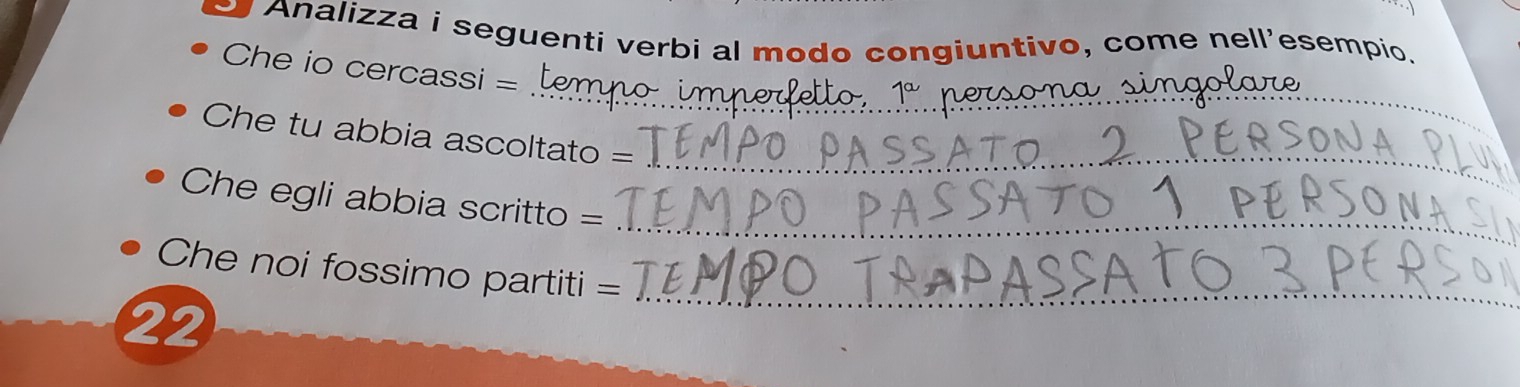 3 Analizza i seguenti verbi al modo congiuntivo, come nell'esempio.
• Che io cercassi = tempo imperfetto, 1ª persona singolare
• Che tu abbia ascoltato = TEMPO PASSATO 2 PERSONA
• Che egli abbia scritto = TEMPO PASSATO 1 PERSONA SIN
• Che noi fossimo partiti = TEMPO TRAPASSATO 3 PERSON
22